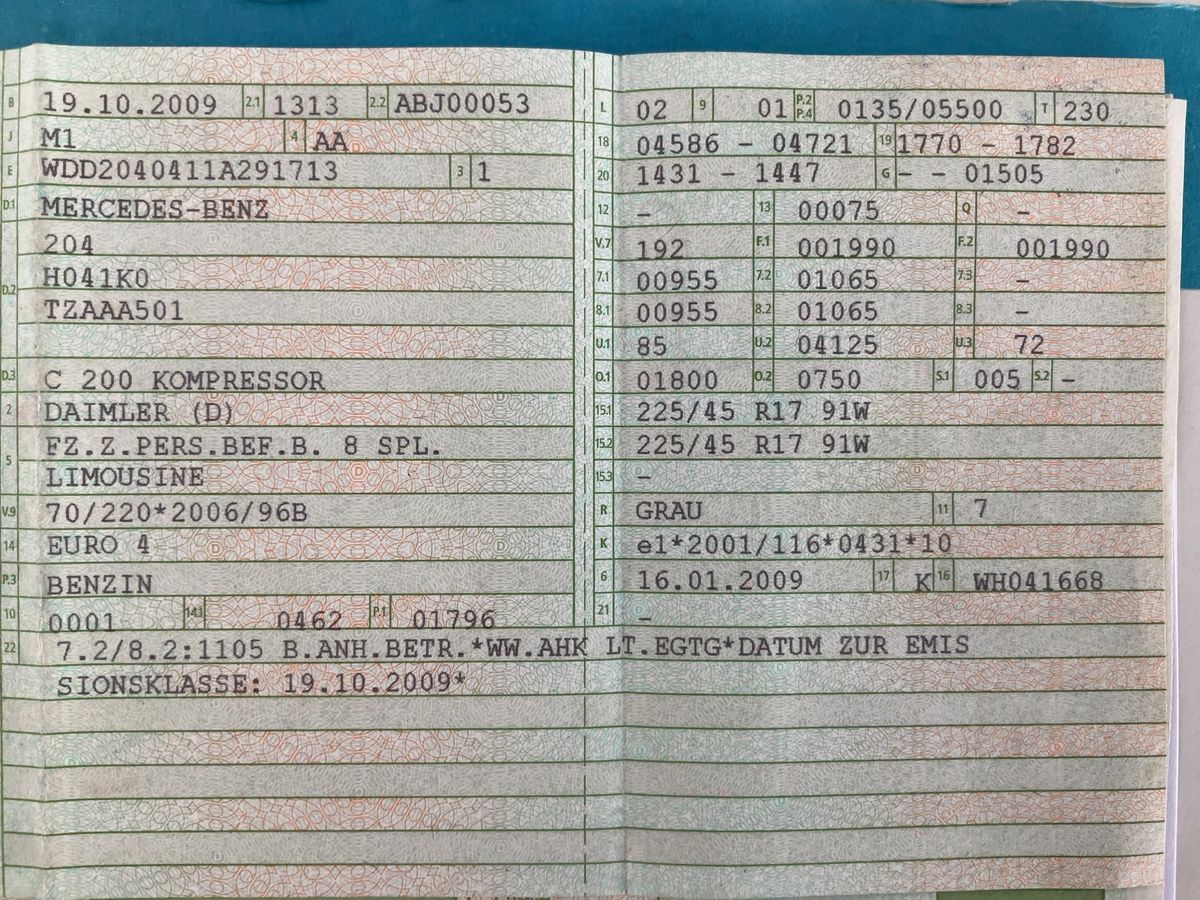 B 19.10.2009 2.1 1313 2.2 ABJ00053
J M1 4 AA
E WDD2040411A291713 3 1
D.1 MERCEDES-BENZ
204
D.2 H041K0
TZAAA501
D.3 C 200 KOMPRESSOR
2 DAIMLER (D)
5 FZ.Z.PERS.BEF.B. 8 SPL.
LIMOUSINE
V.9 70/220*2006/96B
14 EURO 4
P.3 BENZIN
10 0001 14.1 0462 P.1 01796
L 02 9 01 P.2 P.4 0135/05500 T 230
18 04586 - 04721 19 1770 - 1782
20 1431 - 1447 G - - 01505
12 - 13 00075 Q -
V.7 192 F.1 001990 F.2 001990
7.1 00955 7.2 01065 7.3 -
8.1 00955 8.2 01065 8.3 -
U.1 85 U.2 04125 U.3 72
O.1 01800 O.2 0750 S.1 005 S.2 -
15.1 225/45 R17 91W
15.2 225/45 R17 91W
15.3 -
R GRAU 11 7
K e1*2001/116*0431*10
6 16.01.2009 17 K 16 WH041668
21 -
22 7.2/8.2:1105 B.ANH.BETR.*WW.AHK LT.EGTG*DATUM ZUR EMIS
SIONSKLASSE: 19.10.2009*